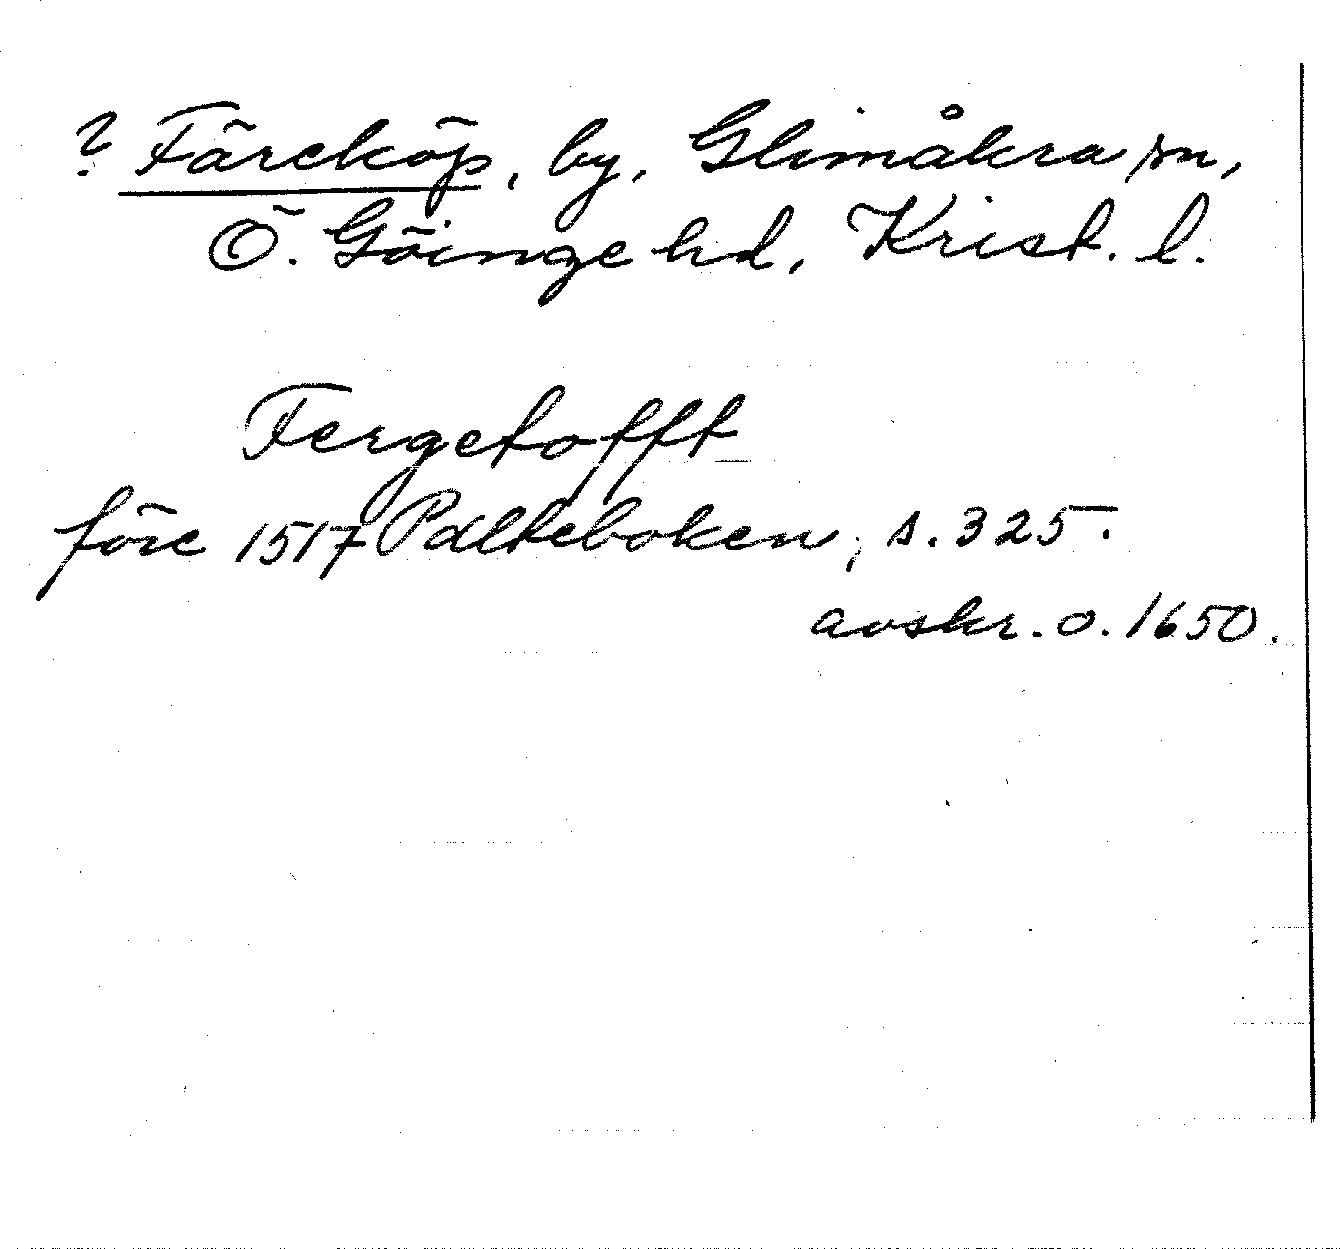 ? Färeköp, by, Glimåkra sn,
Ö. Göinge hd, Krist. l.
Fergetofft
före 1517 Palteboken, s. 325.
avskr. o. 1650.